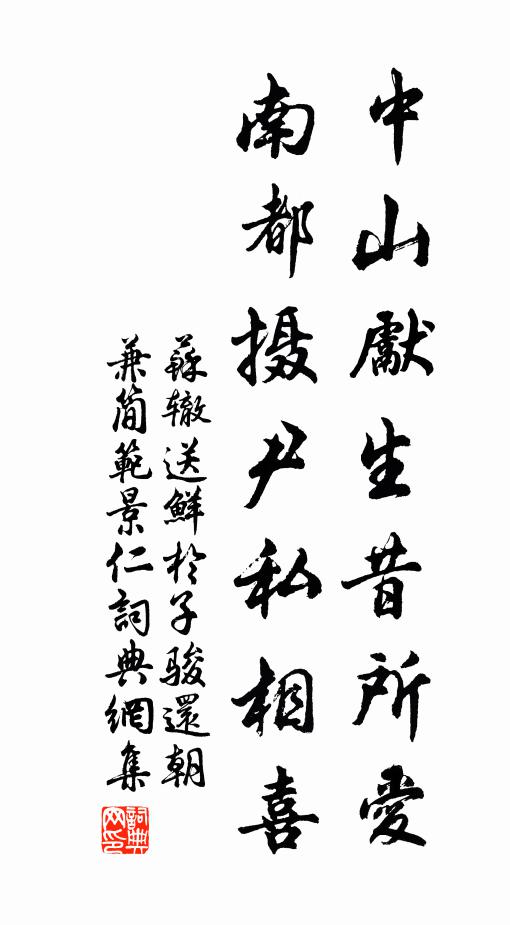 中山獻生昔所愛
南都摄尹私相喜
蘇辙送鮮於子骏還朝
兼简範景仁詞典網集
詞典网印